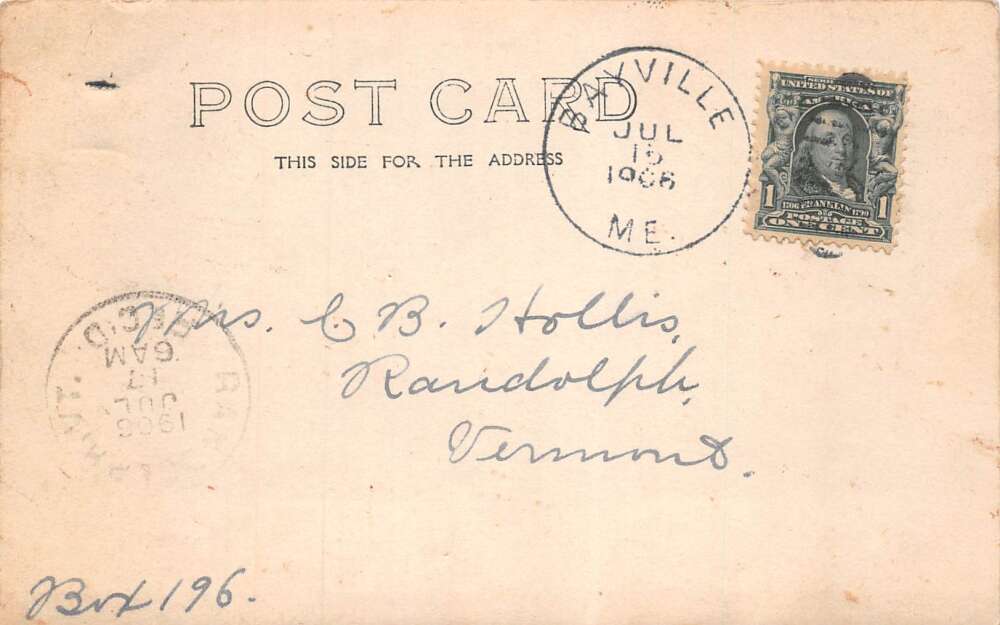 POST CARD
THIS SIDE FOR THE ADDRESS
BAYVILLE
JUL
15
1906
ME.
SERIES
UNITED STATES OF
AMERICA
1706 FRANKLIN 1790
1 POSTAGE 1
ONE CENT
Mrs. C B. Hollis,
Randolph,
Vermont.
REC'D.
6 AM
17
JUL
1906
VT.
Box 196.